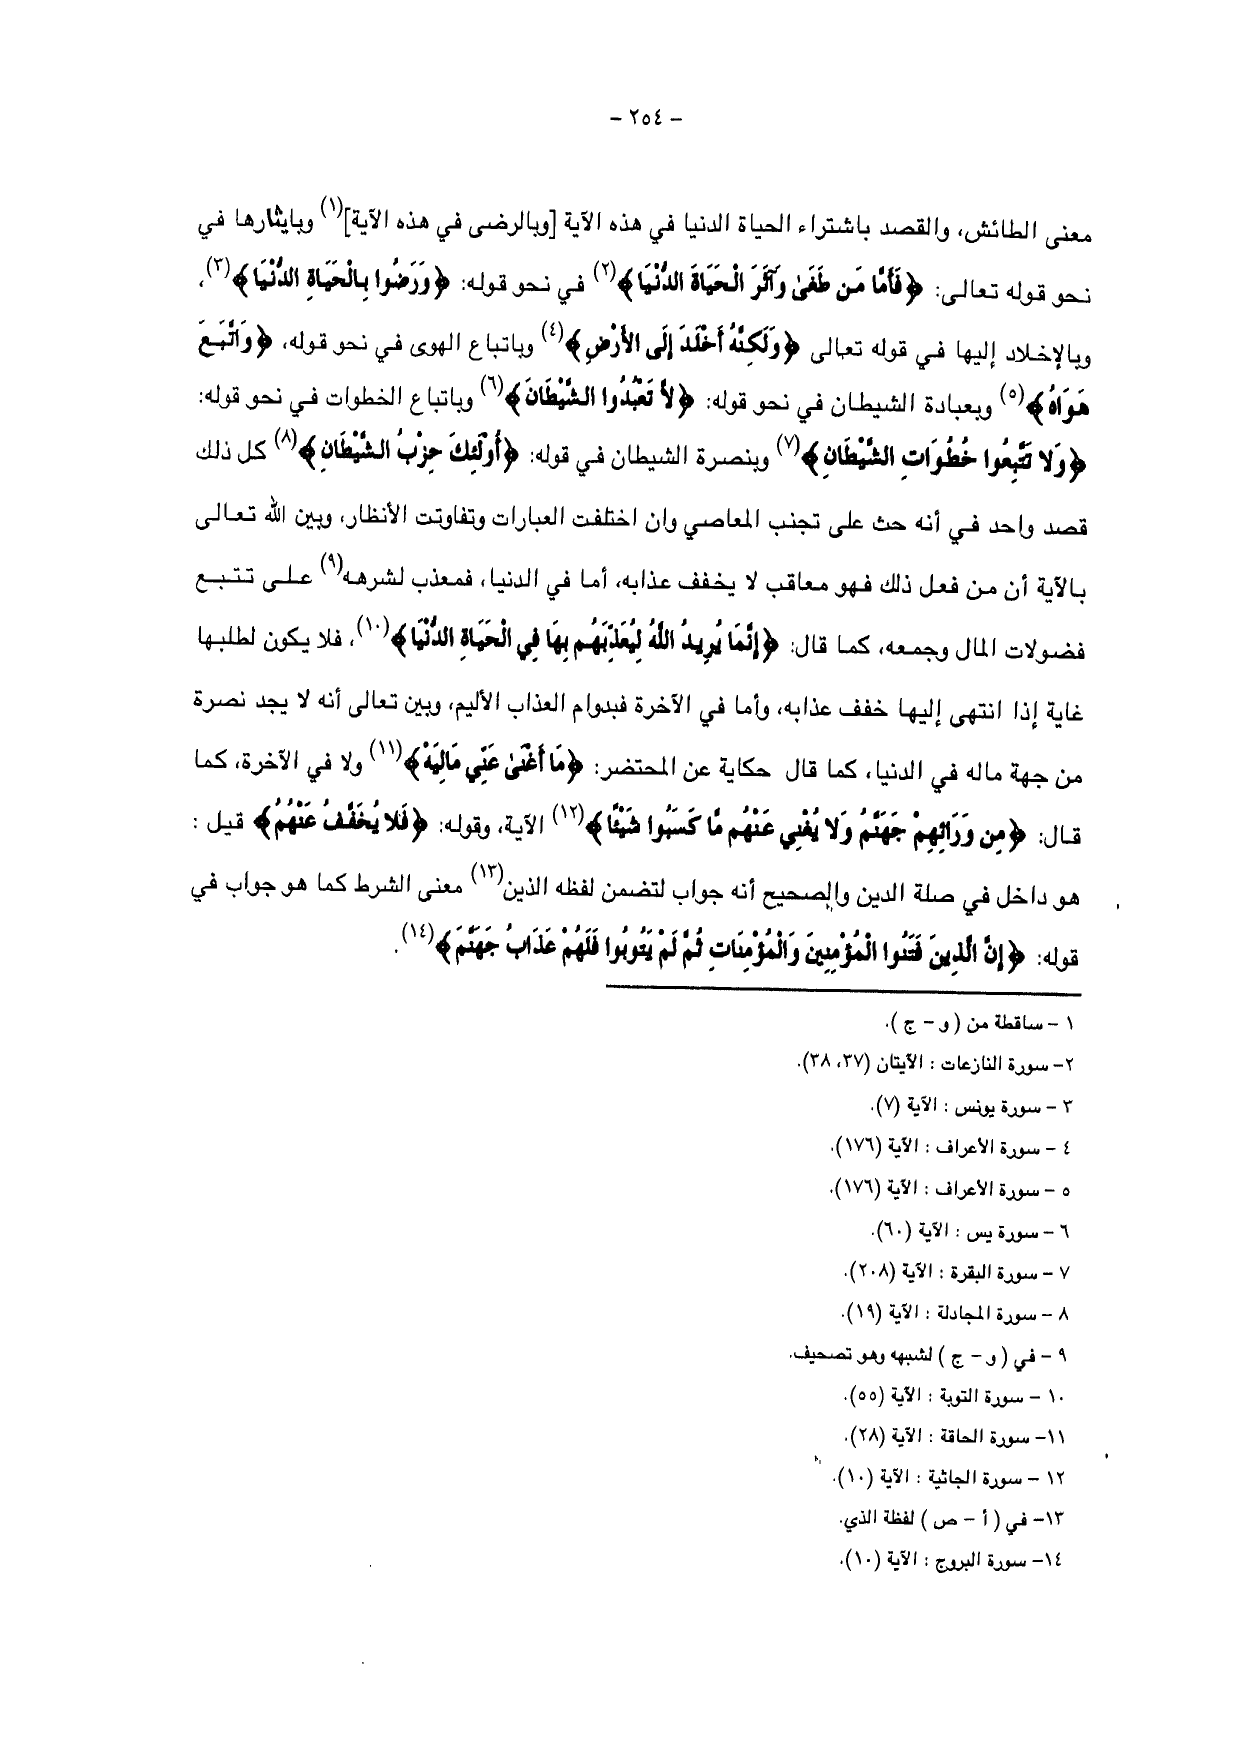 - ٢٥٤ -
معنى الطائش، والقصد باشتراء الحياة الدنيا في هذه الآية [وبالرضى في هذه الآية](١) وبايثارها في
نحو قوله تعالى: ﴿فَأَمَّا مَن طَغَىٰ وَآثَرَ الْحَيَاةَ الدُّنْيَا﴾(٢) في نحو قوله: ﴿وَرَضُوا بِالْحَيَاةِ الدُّنْيَا﴾(٣)،
وبالإخلاد إليها في قوله تعالى ﴿وَلَكِنَّهُ أَخْلَدَ إِلَى الأَرْضِ﴾(٤) وباتباع الهوى في نحو قوله، ﴿وَاتَّبَعَ
هَوَاهُ﴾(٥) وبعبادة الشيطان في نحو قوله: ﴿لاَ تَعْبُدُوا الشَّيْطَانَ﴾(٦) وباتباع الخطوات في نحو قوله:
﴿وَلا تَتَّبِعُوا خُطُوَاتِ الشَّيْطَانِ﴾(٧) وبنصرة الشيطان في قوله: ﴿أُوْلَئِكَ حِزْبُ الشَّيْطَانِ﴾(٨) كل ذلك
قصد واحد في أنه حث على تجنب المعاصي وان اختلفت العبارات وتفاوتت الأنظار، وبين الله تعالى
بالآية أن من فعل ذلك فهو معاقب لا يخفف عذابه، أما في الدنيا، فمعذب لشرهه(٩) على تتبع
فضولات المال وجمعه، كما قال: ﴿إِنَّمَا يُرِيدُ اللَّهُ لِيُعَذِّبَهُم بِهَا فِي الْحَيَاةِ الدُّنْيَا﴾(١٠)، فلا يكون لطلبها
غاية إذا انتهى إليها خفف عذابه، وأما في الآخرة فبدوام العذاب الأليم، وبين تعالى أنه لا يجد نصرة
من جهة ماله في الدنيا، كما قال حكاية عن المحتضر: ﴿مَا أَغْنَىٰ عَنِّي مَالِيَهْ﴾(١١) ولا في الآخرة، كما
قال: ﴿مِن وَرَائِهِمْ جَهَنَّمُ وَلا يُغْنِي عَنْهُم مَّا كَسَبُوا شَيْئًا﴾(١٢) الآية، وقوله: ﴿فَلا يُخَفَّفُ عَنْهُمُ﴾ قيل :
هو داخل في صلة الدين والصحيح أنه جواب لتضمن لفظه الذين(١٣) معنى الشرط كما هو جواب في
قوله: ﴿إِنَّ الَّذِينَ فَتَنُوا الْمُؤْمِنِينَ وَالْمُؤْمِنَاتِ ثُمَّ لَمْ يَتُوبُوا فَلَهُمْ عَذَابُ جَهَنَّمَ﴾(١٤).
١ - ساقطة من (و - ج ).
٢- سورة النازعات : الآيتان (٣٧، ٣٨).
٣ - سورة يونس : الآية (٧).
٤ - سورة الأعراف : الآية (١٧٦).
٥ - سورة الأعراف : الآية (١٧٦).
٦ - سورة يس : الآية (٦٠).
٧ - سورة البقرة : الآية (٢٠٨).
٨ - سورة المجادلة : الآية (١٩).
٩ - في ( و - ج ) لشبهه وهو تصحيف.
١٠ - سورة التوبة : الآية (٥٥).
١١- سورة الحاقة : الآية (٢٨).
١٢ - سورة الجاثية : الآية (١٠).
١٣- في ( أ - ص ) لفظة الذي.
١٤- سورة البروج : الآية (١٠).